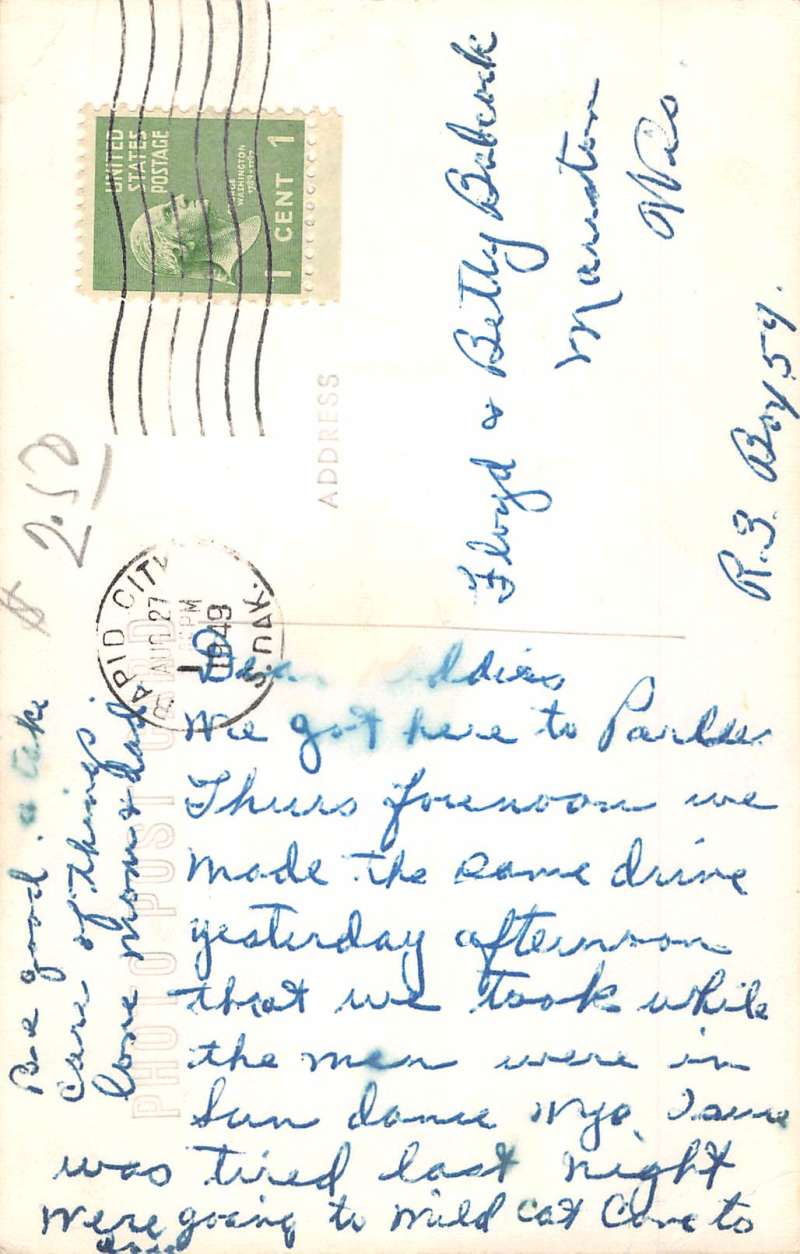 UNITED
STATES
POSTAGE
WASHINGTON
1 CENT 1
$ 2.50
RAPID CITY
AUG 27
PM
1949
S. DAK.
PHOTO POST CARD
ADDRESS
Floyd & Betty Babcock
Mauston
Wis.
R.3. Box 59.
Dear
We got here to
Thurs forenoon we
made the same drive
yesterday afternoon
that we took while
the men were in
Sun dance Wyo. I sure
was tired last night
were going to Wild cat Cave to
Be good. & take
care of things.
Love mom & dad.